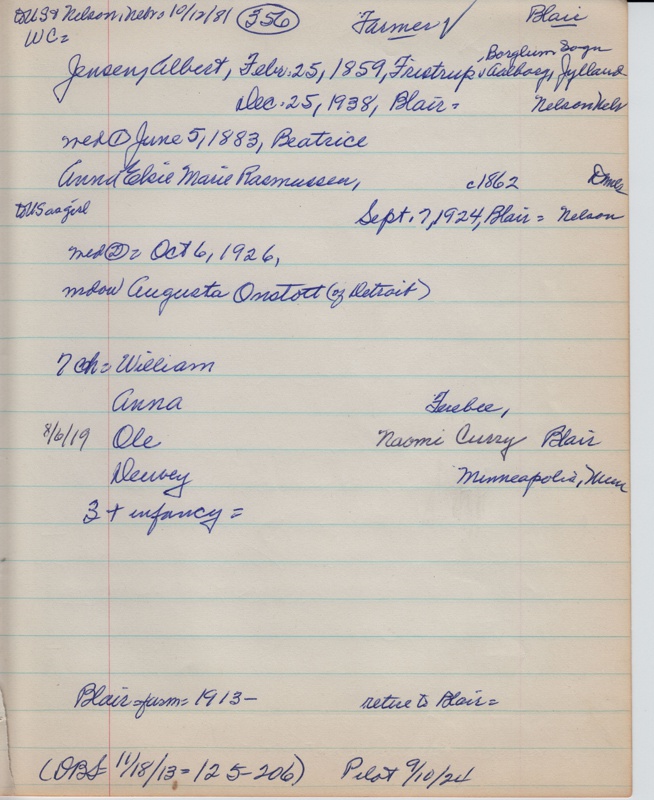 to US & Nelson, Nebr 10/12/81 (356) Farmer Blair
WC =
Borglum Sogn
Jensen, Albert, Febr. 25, 1859, Frustrup, Aalborg, Jylland
Dec. 25, 1938, Blair = Nelson Neb
med ① June 5, 1883, Beatrice
Anna Elsie Marie Rasmussen, c1862
to US as girl Sept. 7, 1924, Blair = Nelson
med ② = Oct 6, 1926,
mdow Augusta Onstott (of Detroit)
7 ch = William
Anna Ferebee,
8/6/19 Ole Naomi Curry Blair
Dewey Minneapolis, Minn
3 + infancy =
Blair = farm = 1913 - retire to Blair =
(OBS 11/18/13 = 125-206) Pilot 9/10/24